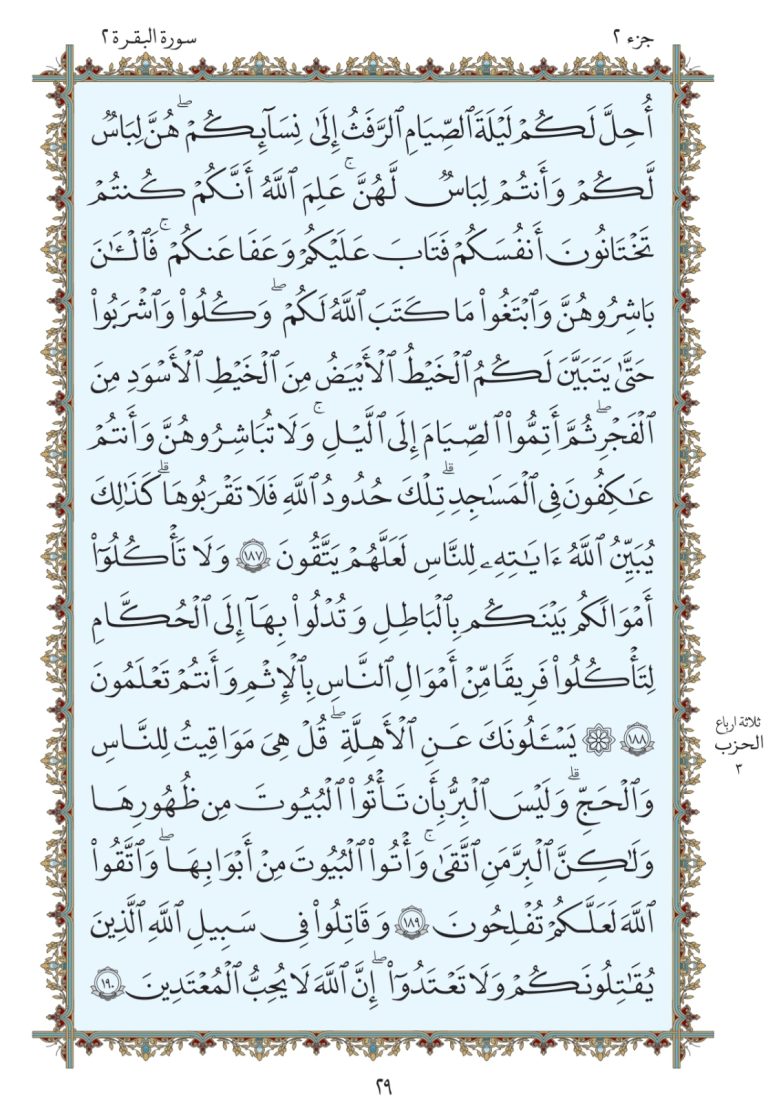 جزء ٢
سورة البقرة ٢
أُحِلَّ لَكُمْ لَيْلَةَ ٱلصِّيَامِ ٱلرَّفَثُ إِلَىٰ نِسَآئِكُمْ ۖ هُنَّ لِبَاسٌ
لَّكُمْ وَأَنتُمْ لِبَاسٌ لَّهُنَّ ۗ عَلِمَ ٱللَّهُ أَنَّكُمْ كُنتُمْ
تَخْتَانُونَ أَنفُسَكُمْ فَتَابَ عَلَيْكُمْ وَعَفَا عَنكُمْ ۖ فَٱلْـَٰٔنَ
بَاشِرُوهُنَّ وَٱبْتَغُوا۟ مَا كَتَبَ ٱللَّهُ لَكُمْ ۚ وَكُلُوا۟ وَٱشْرَبُوا۟
حَتَّىٰ يَتَبَيَّنَ لَكُمُ ٱلْخَيْطُ ٱلْأَبْيَضُ مِنَ ٱلْخَيْطِ ٱلْأَسْوَدِ مِنَ
ٱلْفَجْرِ ۖ ثُمَّ أَتِمُّوا۟ ٱلصِّيَامَ إِلَى ٱلَّيْلِ ۚ وَلَا تُبَاشِرُوهُنَّ وَأَنتُمْ
عَـٰكِفُونَ فِى ٱلْمَسَـٰجِدِ ۗ تِلْكَ حُدُودُ ٱللَّهِ فَلَا تَقْرَبُوهَا ۗ كَذَٰلِكَ
يُبَيِّنُ ٱللَّهُ ءَايَـٰتِهِۦ لِلنَّاسِ لَعَلَّهُمْ يَتَّقُونَ ١٨٧ وَلَا تَأْكُلُوٓا۟
أَمْوَٰلَكُم بَيْنَكُم بِٱلْبَـٰطِلِ وَتُدْلُوا۟ بِهَآ إِلَى ٱلْحُكَّامِ
لِتَأْكُلُوا۟ فَرِيقًا مِّنْ أَمْوَٰلِ ٱلنَّاسِ بِٱلْإِثْمِ وَأَنتُمْ تَعْلَمُونَ
١٨٨ ۞ يَسْـَٔلُونَكَ عَنِ ٱلْأَهِلَّةِ ۖ قُلْ هِىَ مَوَٰقِيتُ لِلنَّاسِ
وَٱلْحَجِّ ۗ وَلَيْسَ ٱلْبِرُّ بِأَن تَأْتُوا۟ ٱلْبُيُوتَ مِن ظُهُورِهَا
وَلَـٰكِنَّ ٱلْبِرَّ مَنِ ٱتَّقَىٰ ۗ وَأْتُوا۟ ٱلْبُيُوتَ مِنْ أَبْوَٰبِهَا ۚ وَٱتَّقُوا۟
ٱللَّهَ لَعَلَّكُمْ تُفْلِحُونَ ١٨٩ وَقَـٰتِلُوا۟ فِى سَبِيلِ ٱللَّهِ ٱلَّذِينَ
يُقَـٰتِلُونَكُمْ وَلَا تَعْتَدُوٓا۟ ۚ إِنَّ ٱللَّهَ لَا يُحِبُّ ٱلْمُعْتَدِينَ ١٩٠
ثلاثة ارباع
الحزب
٣
٢٩